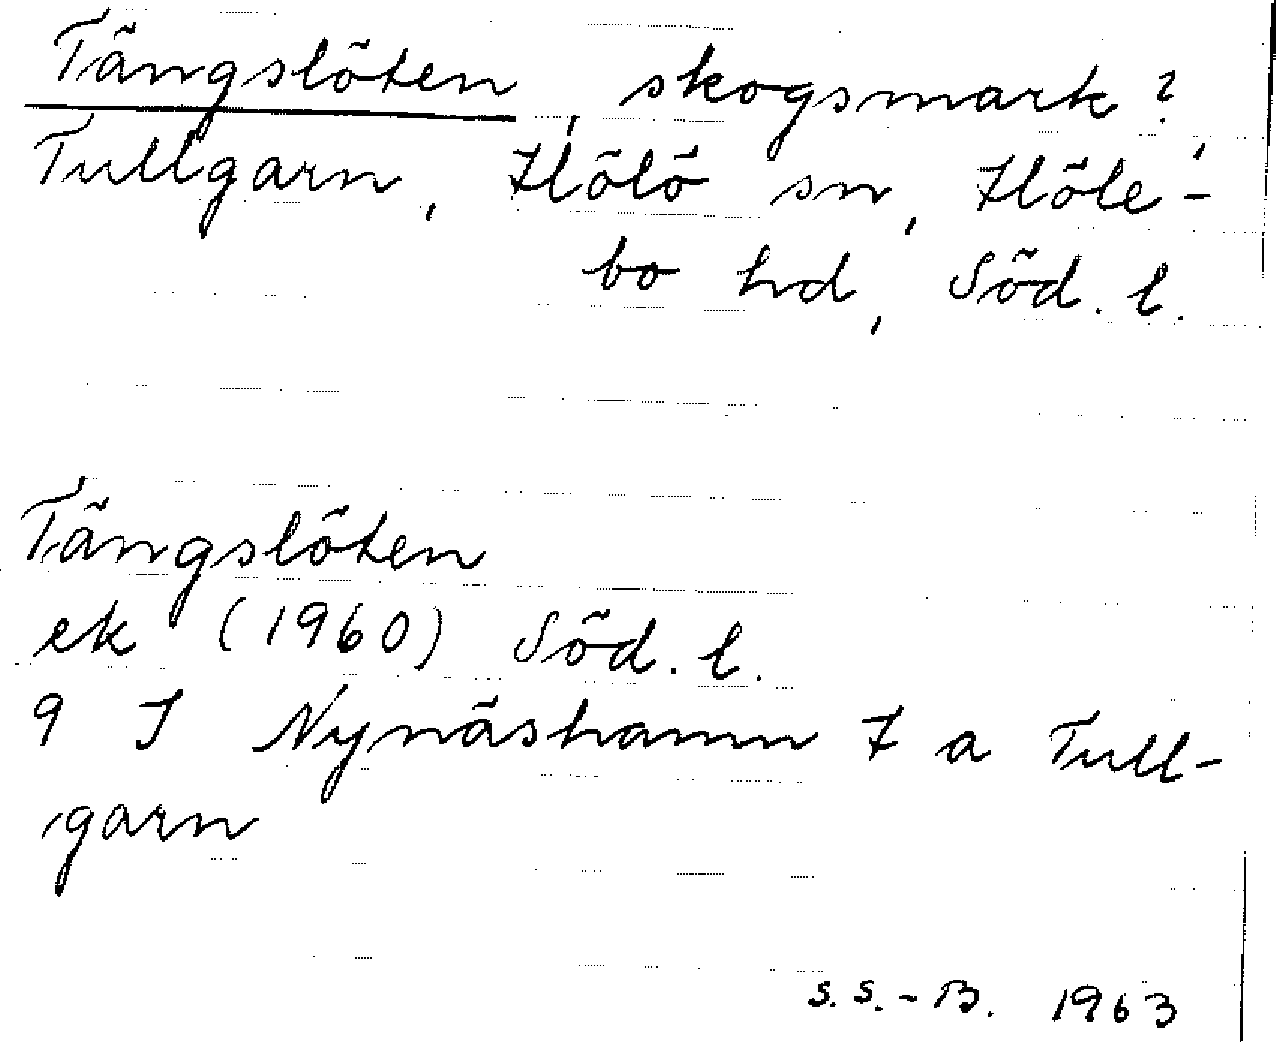 Tängslöten, skogsmark?,
Tullgarn, Hölö sn, Höle-
bo hd, Söd. l.
Tängslöten
ek (1960) Söd. l.
9 I Nynäshamn 7 a Tull-
garn
S.S.-B. 1963